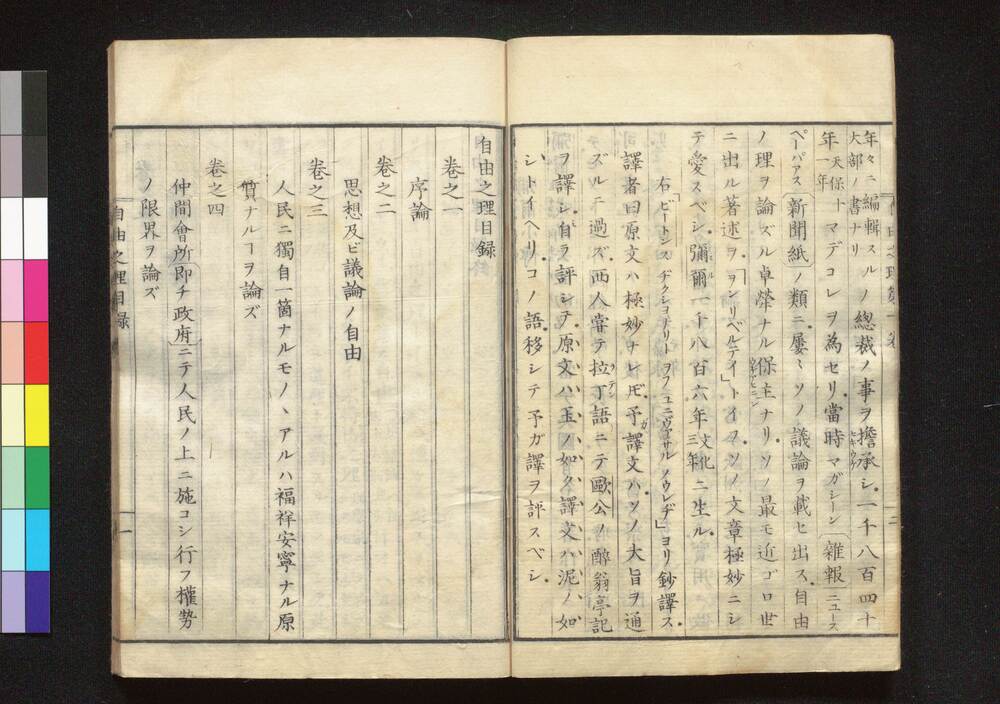 年々ニ編輯スルノ總裁ノ事ヲ擔承シ一千八百四十
大部ノ書ナリ
セキウケ
年天保十一年マデコレヲ為セリ當時マガシーン雜報ニユース
ペーパアス新聞紙ノ類ニ屢々ソノ議論ヲ載セ出ス自由
ノ理ヲ論ズル卓犖ナル保主ナリソノ最モ近ゴロ世
ニ出ル著述ヲ「ヲンリベルテイ」トイフソノ文章極妙ニシ
テ愛スベシ彌爾一千八百六年文化三年ニ生ル
右「ビートンスヂクショナリートヲフユニヴアサルノウレヂ」ヨリ鈔譯ス
譯者曰原文ハ極妙ナレ𪜈予ガ譯文ハソノ大旨ヲ通
ズルニ過ズ西人嘗テ拉丁語ニテ歐公ノ醉翁亭記
ラテン
ヲ譯シ自ラ評シテ原文ハ玉ノ如ク譯文ハ泥ノ如
シトイヘリコノ語移シテ予ガ譯ヲ評スベシ
自由之理目録
卷之一
序論
卷之二
思想及ビ議論ノ自由
卷之三
人民ニ獨自一箇ナルモノヽアルハ福祥安寧ナル原
質ナルヿヲ論ズ
卷之四
仲間會所即チ政府ニテ人民ノ上ニ施コシ行フ權勢
ノ限界ヲ論ズ
自由之理目録
一